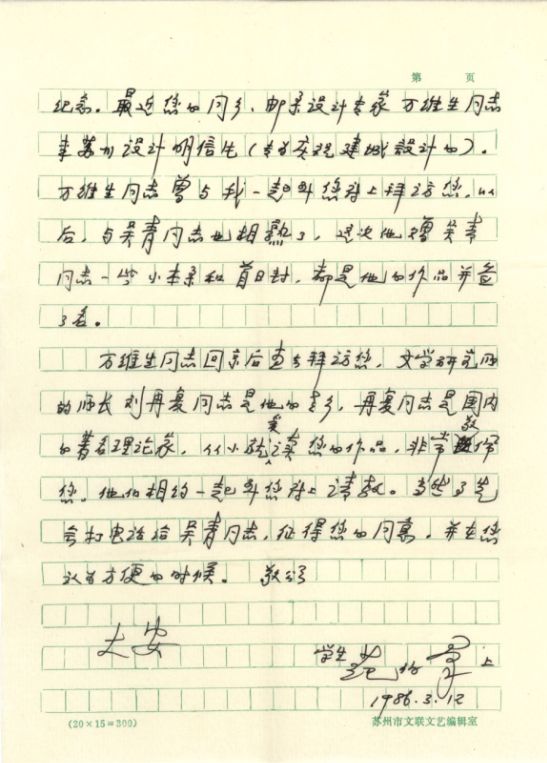 第 页
纪念。最近您的同乡、邮票设计专家万维生同志
来苏州设计明信片（专为苏州建城设计的）。
万维生同志曾与我一起到您府上拜访您，以
后，与吴青同志也相熟了，这次他赠吴青
同志一些小本票和首日封，都是他的作品并签
了名。
万维生同志回京后要去拜访您，文学研究所
的所长刘再复同志是他的老乡，再复同志是国内
的著名理论家，从小就喜读您的作品，非常敬仰
您。他们相约一起到您府上请教。当然事先
会打电话给吴青同志，征得您的同意，并在您
认为方便的时候。 敬颂
大安
学生 范 上
1986.3.12
(20×15=300)
苏州市文联文艺编辑室